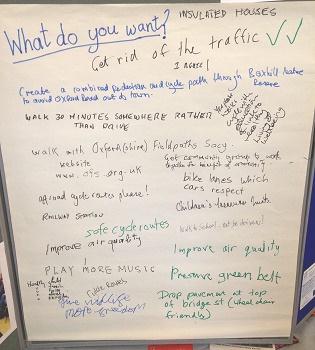 What do you want?
INSULATED HOUSES
Get rid of the traffic ✓✓
I agree!
Create a combined pedestrian and cycle path through Boxhill Nature Reserve
to avoid Oxford Road out of town.
WALK 30 MINUTES SOMEWHERE RATHER
THAN DRIVE
walk with Oxford(shire) Fieldpaths Socy.
website
www.ofs.org.uk
Get community group to work
together for benefit of
bike lanes which
cars respect
off road cycle routes please!
Children's
RAILWAY STATION
safe cycle routes
Walk to School - not be driven!
Improve air quality
Improve air quality
PLAY MORE MUSIC
Preserve green belt
Cycle Routes
Give wildlife
more freedom
Drop pavement at top
of bridge st (wheel chair
friendly)